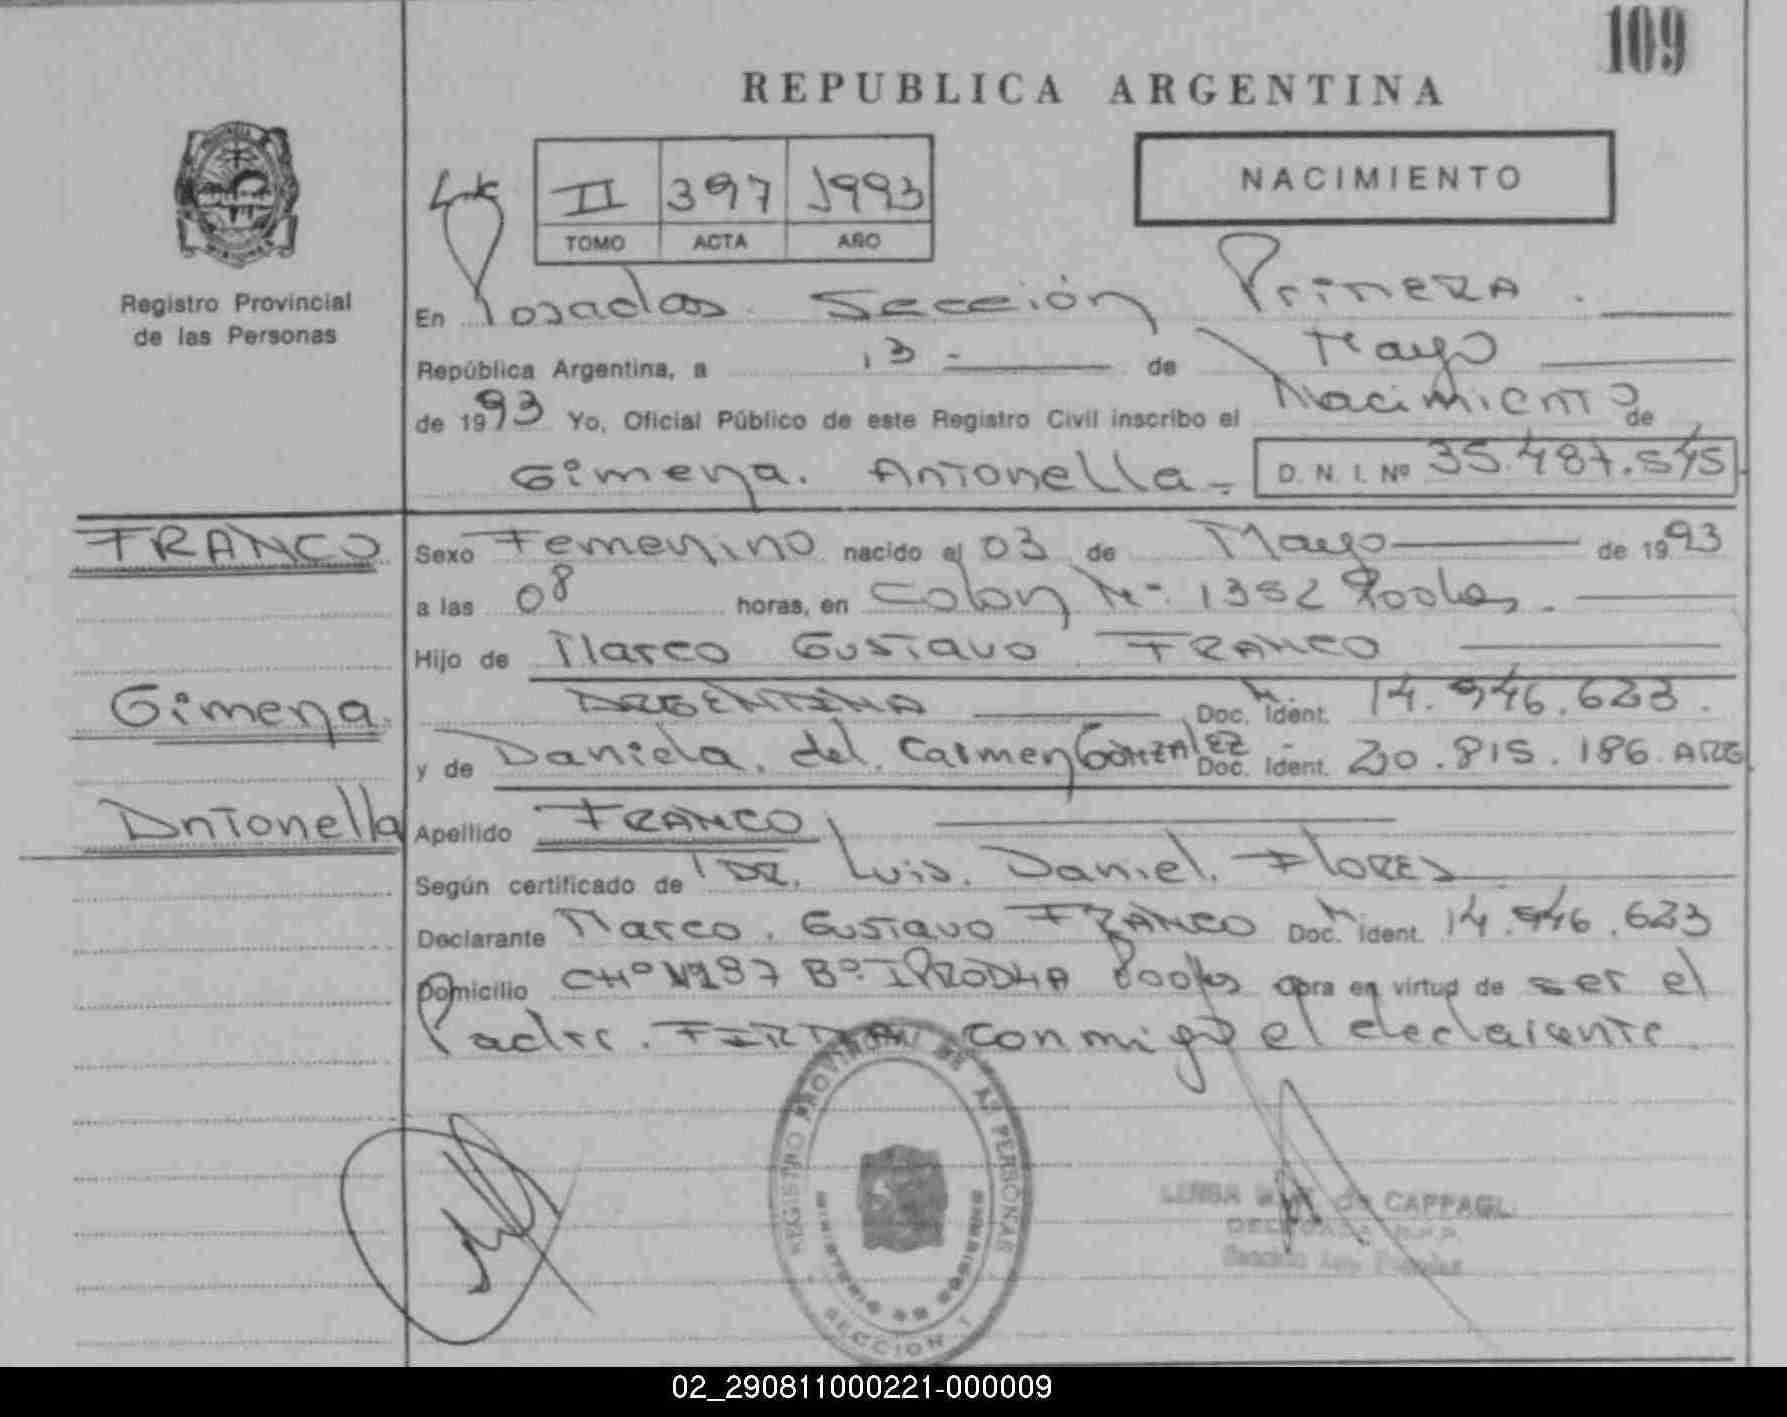 109
REPUBLICA ARGENTINA
II 397 1993
TOMO ACTA AÑO
NACIMIENTO
Registro Provincial
de las Personas
En Posadas Sección Primera.
República Argentina, a 13 - de Mayo
de 1993 Yo, Oficial Público de este Registro Civil inscribo el Nacimiento de
Gimena. Antonella - D. N. I. Nº 35.487.545
FRANCO
Sexo Femenino nacido el 03 de Mayo de 1993
a las 08 horas, en Colon Nº 1352 Posdas.
Hijo de Marco Gustavo FRANCO
Gimena.
ARGENTINA Doc. Ident. 14.946.623.
y de Daniela. del. Carmen GONZALEZ Doc. Ident. 20.815.186. ARG
Antonella
Apellido FRANCO
Según certificado de DR. Luis. Daniel. FLORES
Declarante Marco. Gustavo FRANCO Doc. Ident. 14.946.623
Domicilio CHº Nº197 Bº. IPRODHA Posdas obra en virtud de ser el
Padre. FIRMA conmigo el declarante.
REGISTRO PROVINCIAL DE LAS PERSONAS
MINISTERIO DE GOBIERNO
SECCION 1
de CAPPAGLI
02_290811000221-000009